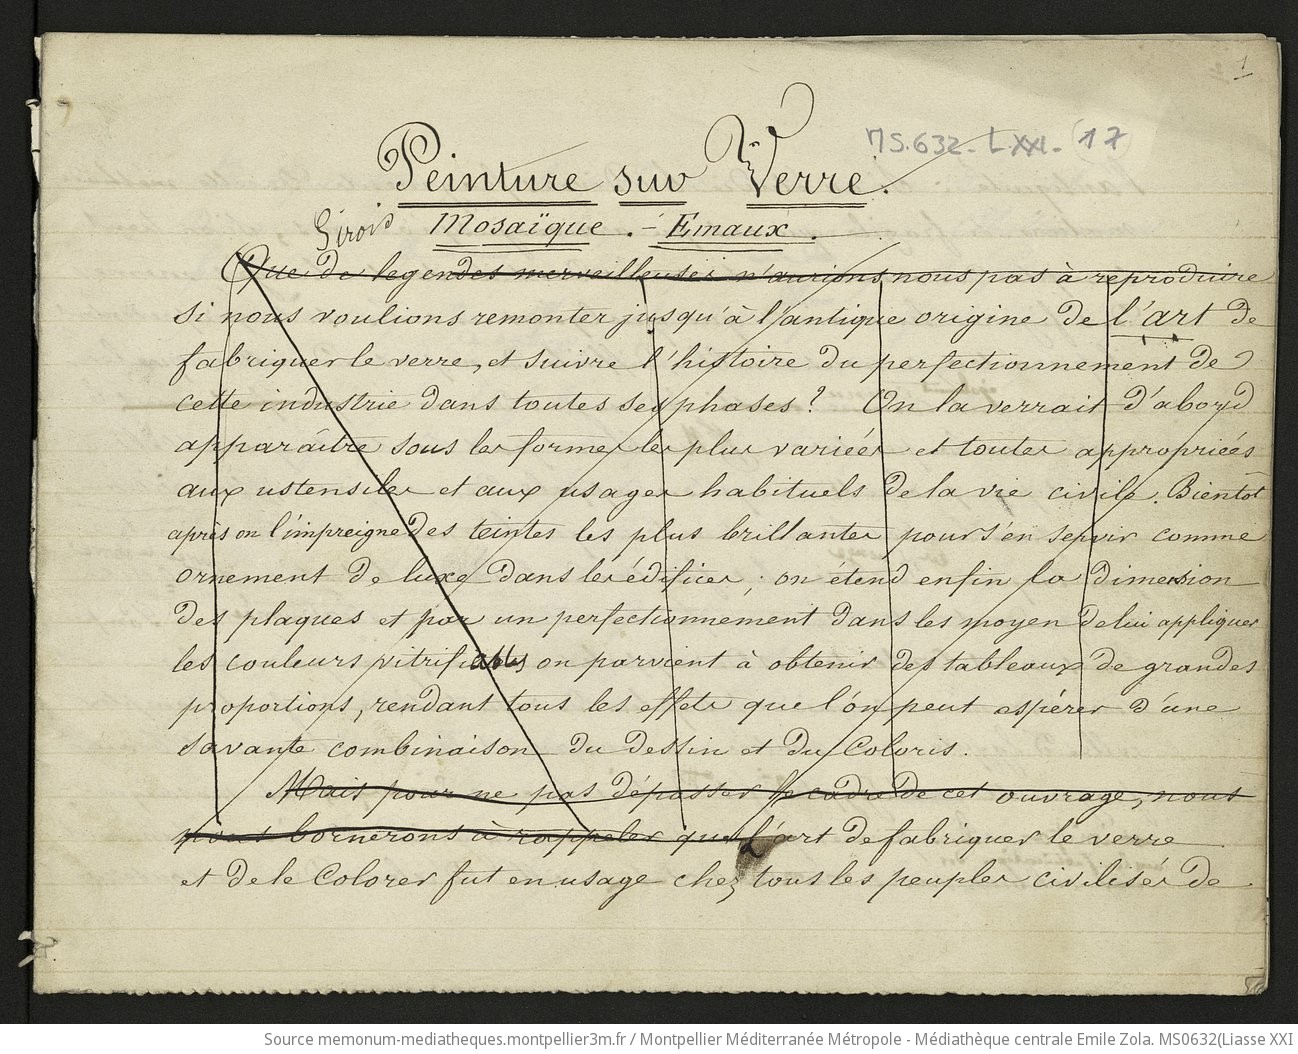 1
MS.632- LXXI- (17)
Peinture sur Verre.
Mosaïque. - Emaux.
Que de legendes merveilleuses n'aurions nous pas à reproduire
si nous voulions remonter jusqu'à l'antique origine de l'art de
fabriquer le verre, et suivre l'histoire du perfectionnement de
cette industrie dans toutes ses phases ? On la verrait d'abord
apparaître sous les formes les plus variées et toutes appropriées
aux ustensiles et aux usages habituels de la vie civile. Bientôt
après on l'impreigne des teintes les plus brillantes pour s'en servir comme
ornement de luxe dans les édifices ; on étend enfin la dimension
des plaques et par un perfectionnement dans les moyen de lui appliquer
les couleurs vitrifiables on parvient à obtenir des tableaux de grandes
proportions, rendant tous les effets que l'on peut espérer d'une
savante combinaison du dessin et du Coloris.
Mais pour ne pas dépasser le cadre de cet ouvrage, nous
nous bornerons à rappeler que l'art de fabriquer le verre
et de le Colorer fut en usage chez tous les peuples civilisés de
Source memonum-mediatheques.montpellier3m.fr / Montpellier Méditerranée Métropole - Médiathèque centrale Emile Zola. MS0632(Liasse XXI